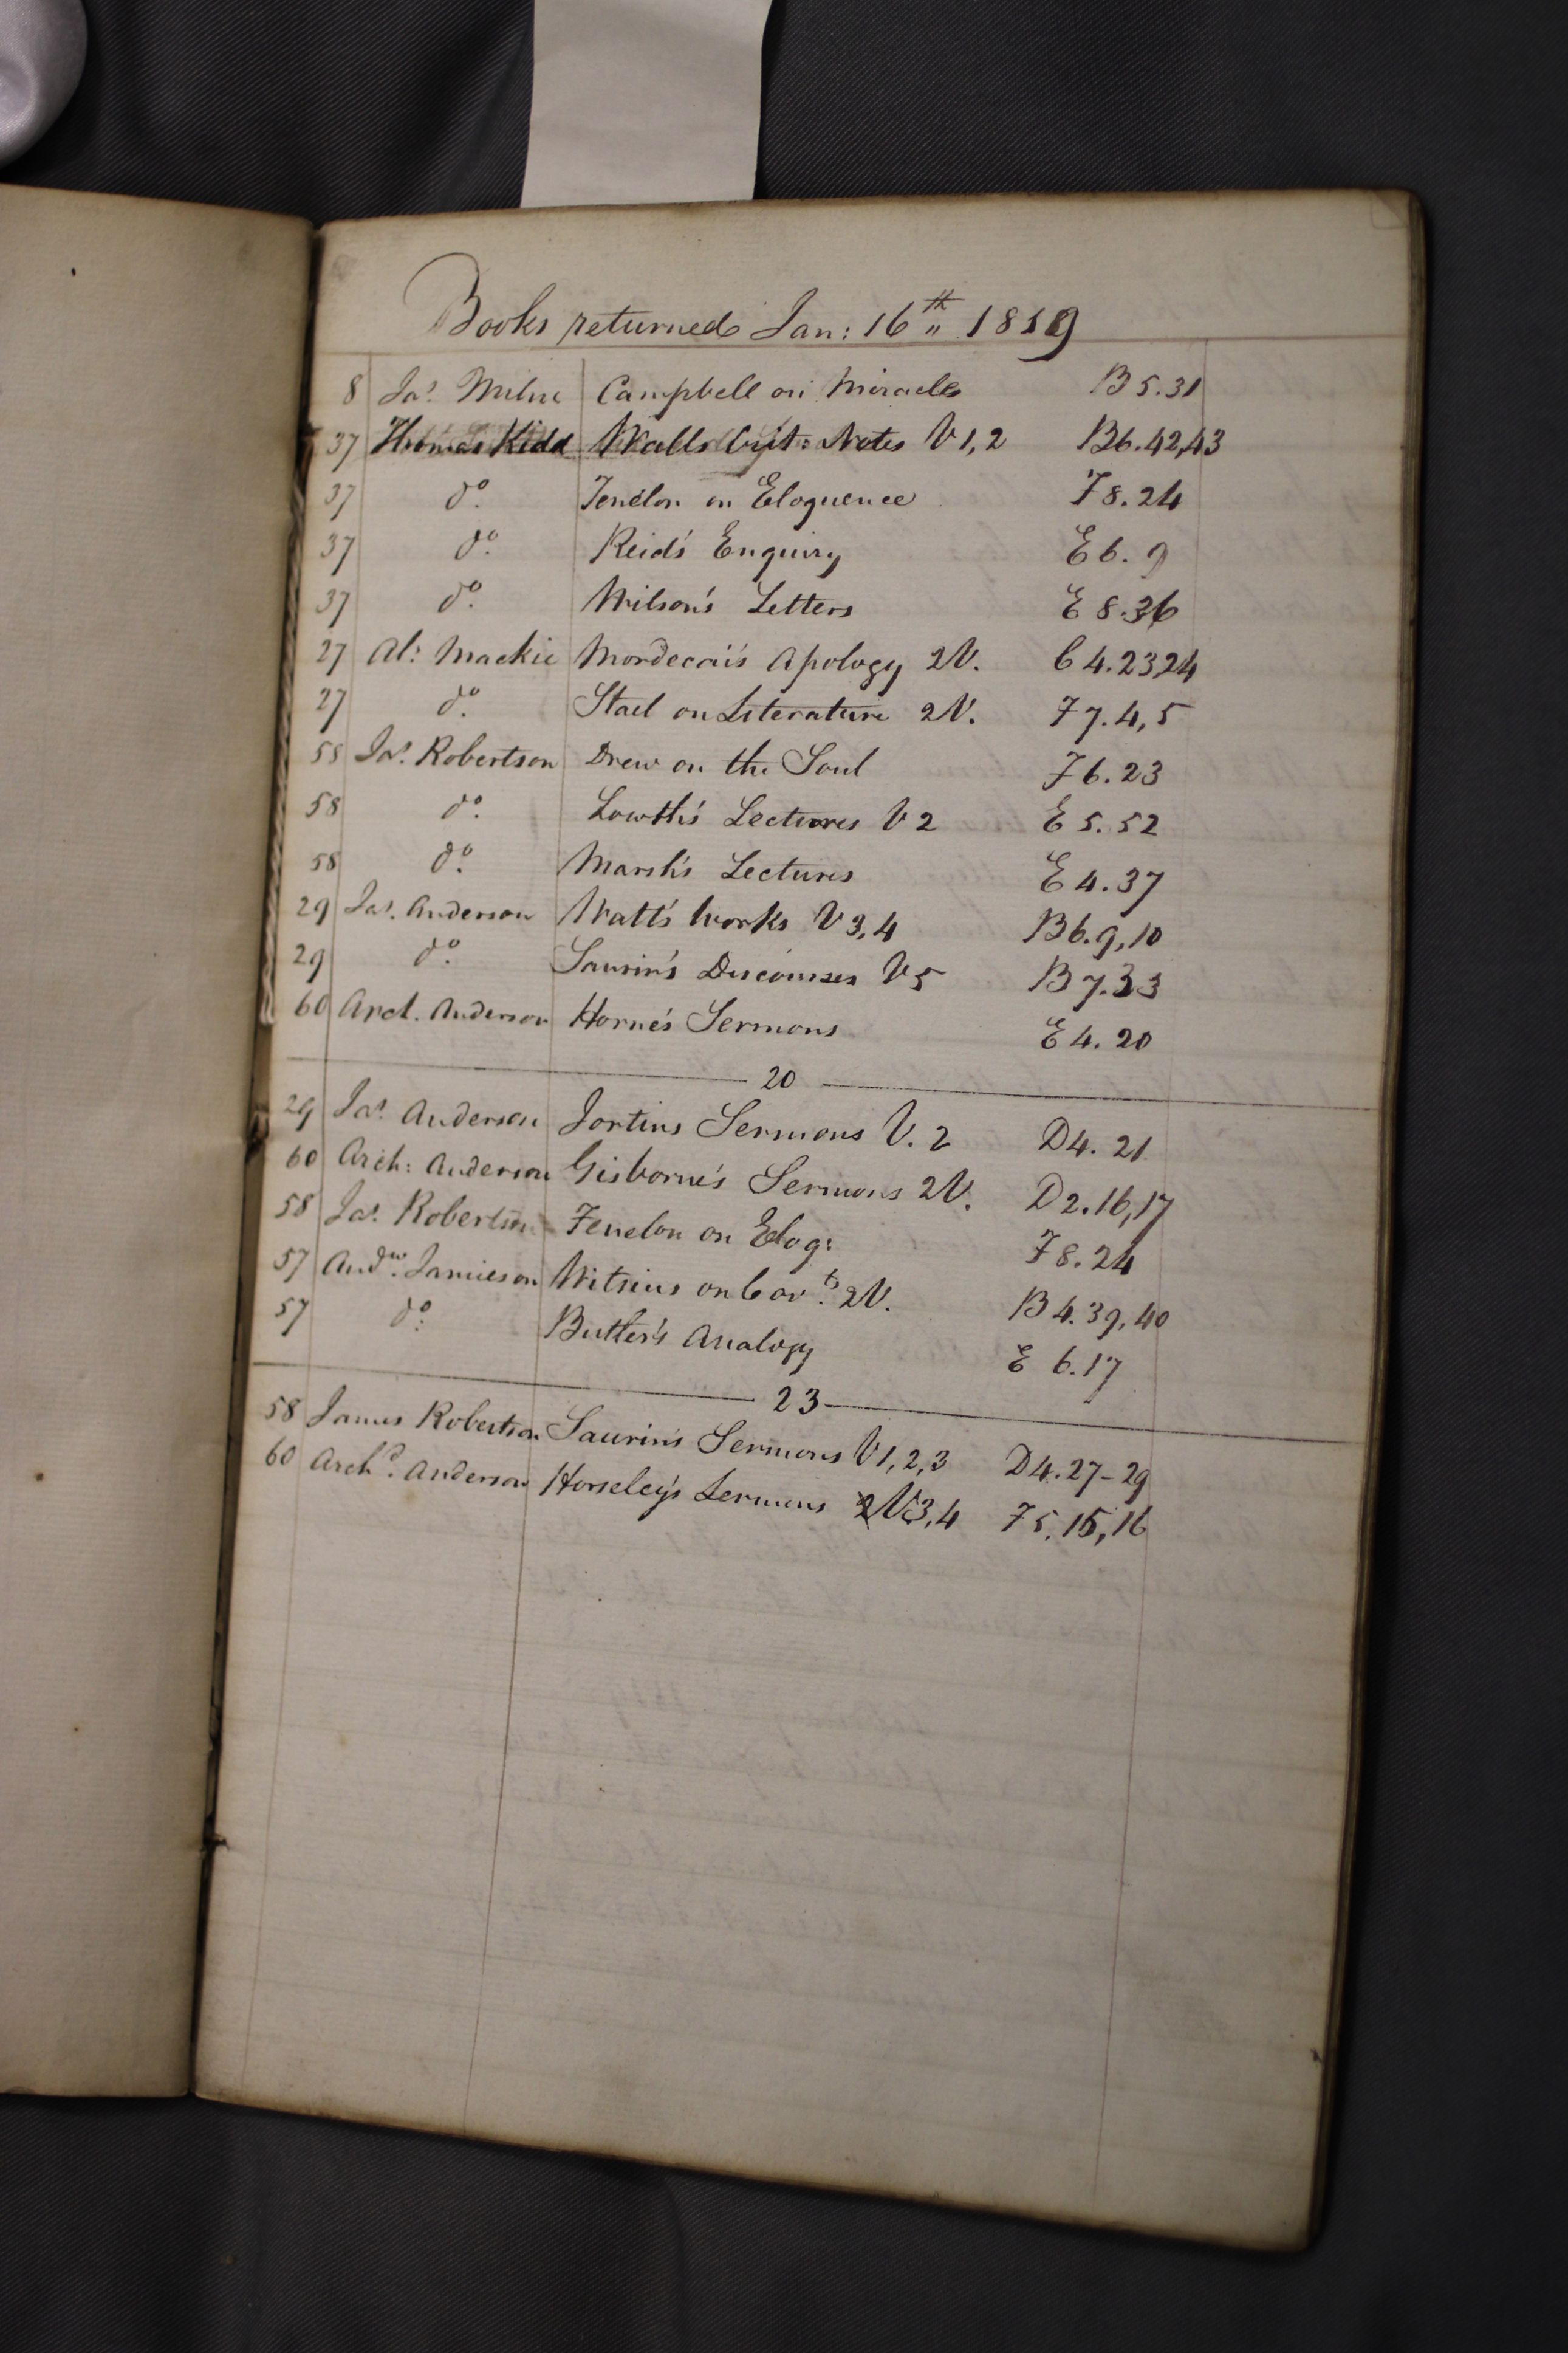 Books returned Jan: 16th 1819
8 Jas. Milne Campbell on Miracles B 5.31
37 Thomas Kidd Walls Crit: Notes V 1, 2 B6.42,43
37 do. Fenélon on Eloquence F 8.24
37 do. Reid's Enquiry E 6. 9
37 do. Wilson's Letters E 8.36
27 Al: Mackie Mordecai's Apology 2V. C 4.23,24
27 do. Stael on Literature 2V. F 7.4,5
58 Jas. Robertson Drew on the Soul F 6.23
58 do. Lowth's Lectures V 2 E 5.52
58 do. Marsh's Lectures E 4.37
29 Jas. Anderson Watt's Works V 3,4 B6.9,10
29 do. Saurin's Discourses V 5 B 7.33
60 Arch. Anderson Horne's Sermons E 4. 20
20
29 Jas. Anderson Jortins Sermons V. 2 D4. 21
60 Arch: Anderson Gisborne's Sermons 2V. D2.16,17
58 Jas. Robertson Fenelon on Eloq: F 8.24
57 Andw. Jamieson Witsius on Covts. 2V. B 4.39,40
57 do: Butler's Analogy E 6.17
23
58 James Robertson Saurin's Sermons V 1,2,3 D4.27-29
60 Archd. Anderson Horseley's Sermons V. 3,4 F 5.15,16